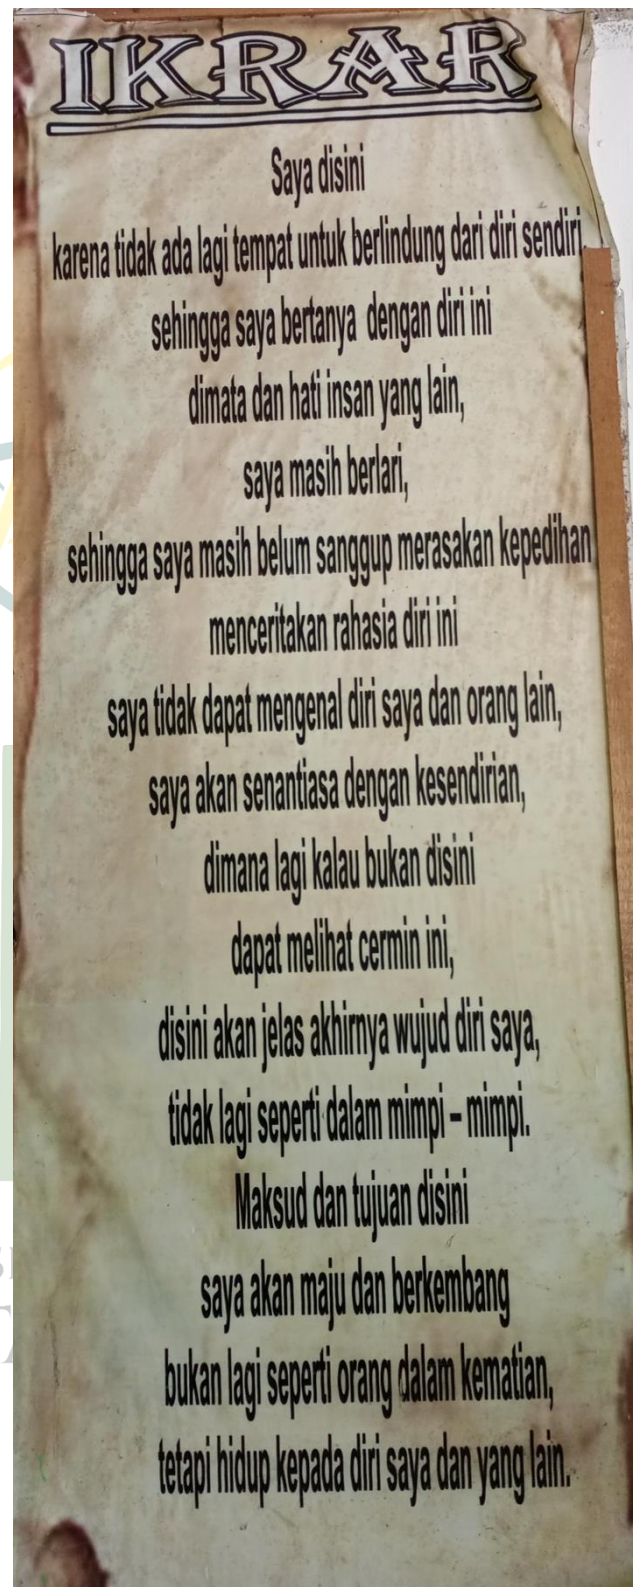 IKRAR
Saya disini
karena tidak ada lagi tempat untuk berlindung dari diri sendiri,
sehingga saya bertanya dengan diri ini
dimata dan hati insan yang lain,
saya masih berlari,
sehingga saya masih belum sanggup merasakan kepedihan
menceritakan rahasia diri ini
saya tidak dapat mengenal diri saya dan orang lain,
saya akan senantiasa dengan kesendirian,
dimana lagi kalau bukan disini
dapat melihat cermin ini,
disini akan jelas akhirnya wujud diri saya,
tidak lagi seperti dalam mimpi – mimpi.
Maksud dan tujuan disini
saya akan maju dan berkembang
bukan lagi seperti orang dalam kematian,
tetapi hidup kepada diri saya dan yang lain.